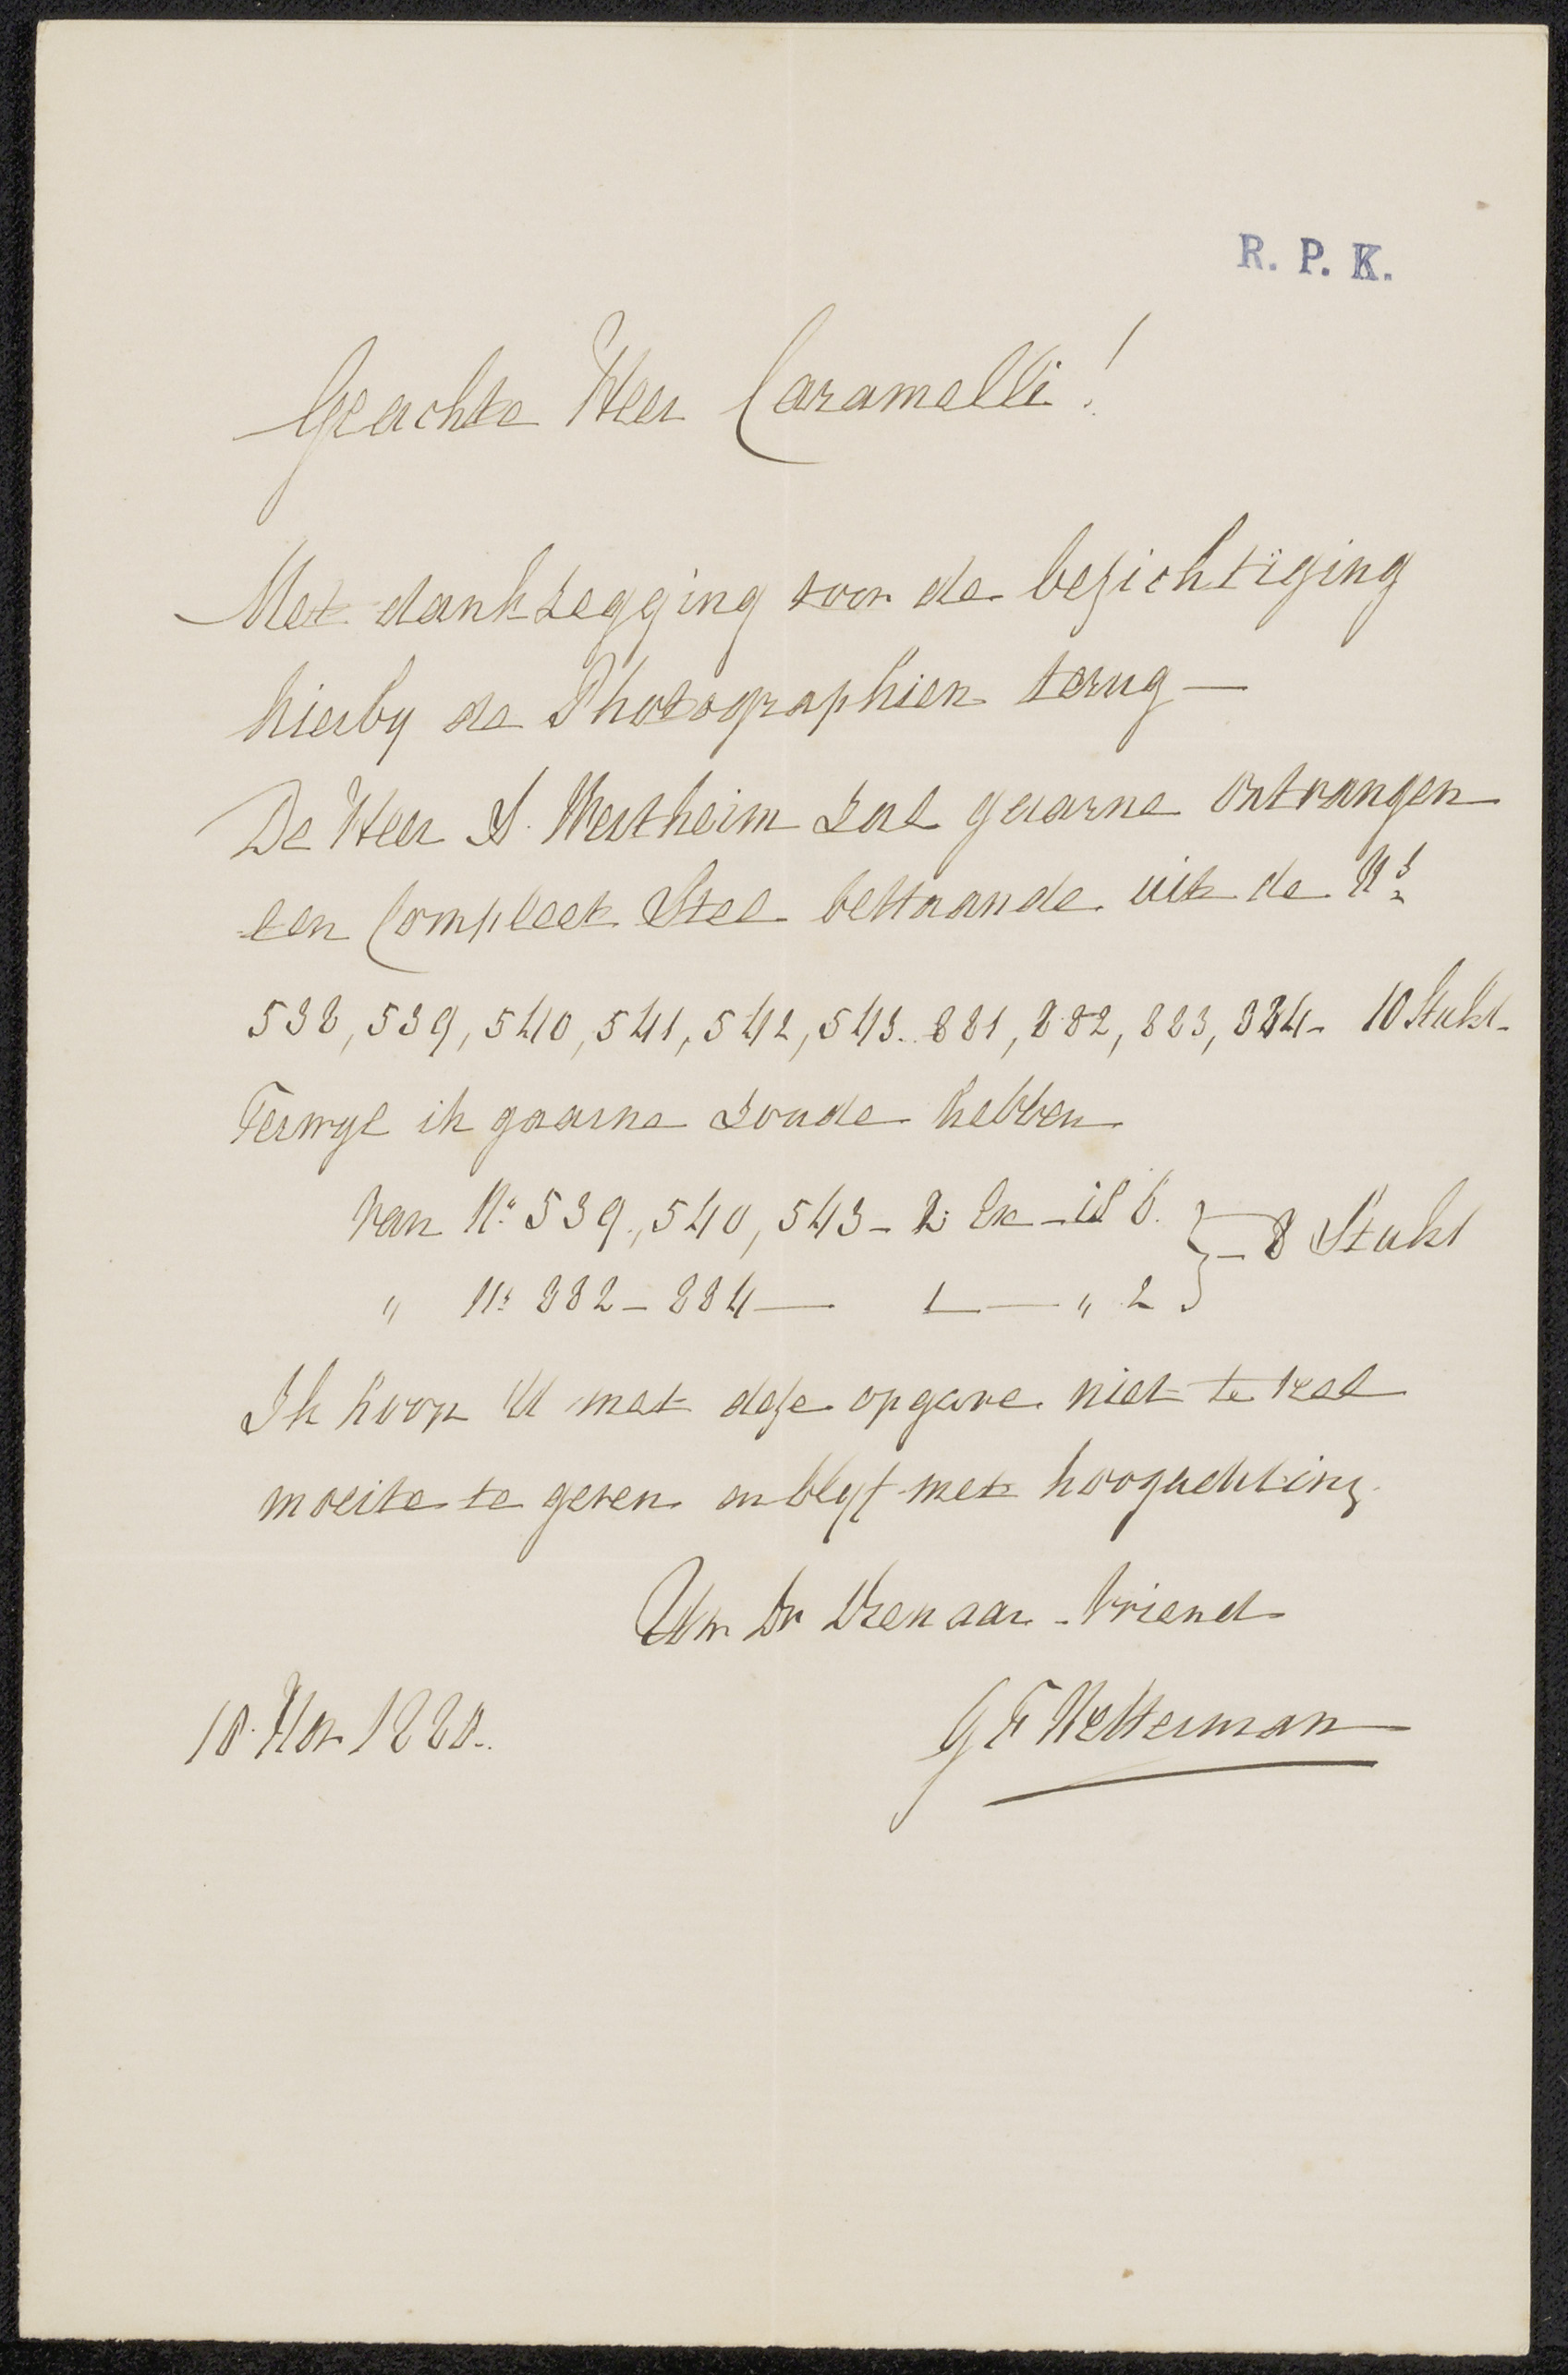 R. P. K.
Geachte Heer Caramelli!
Met dankzegging voor de bezichtiging
hierby de Photographien terug —
De Heer A. Wertheim zal gaarne ontvangen
een Compleet Stel bestaande uit de Nos
538, 539, 540, 541, 542, 543. 881, 882, 883, 884 - 10 Stuks -
Terwyl ik gaarne zoude hebben
van No 539, 540, 543 - 2 Ex - is 6. } - 8 Stuks
" No 882 - 884 — 1 — " 2
Ik hoop U met deze opgave niet te veel
moeite te geven en blyf met hoogachting
Uw Dw Dienaar - Vriend
10 Nov 1880.
G F Westerman